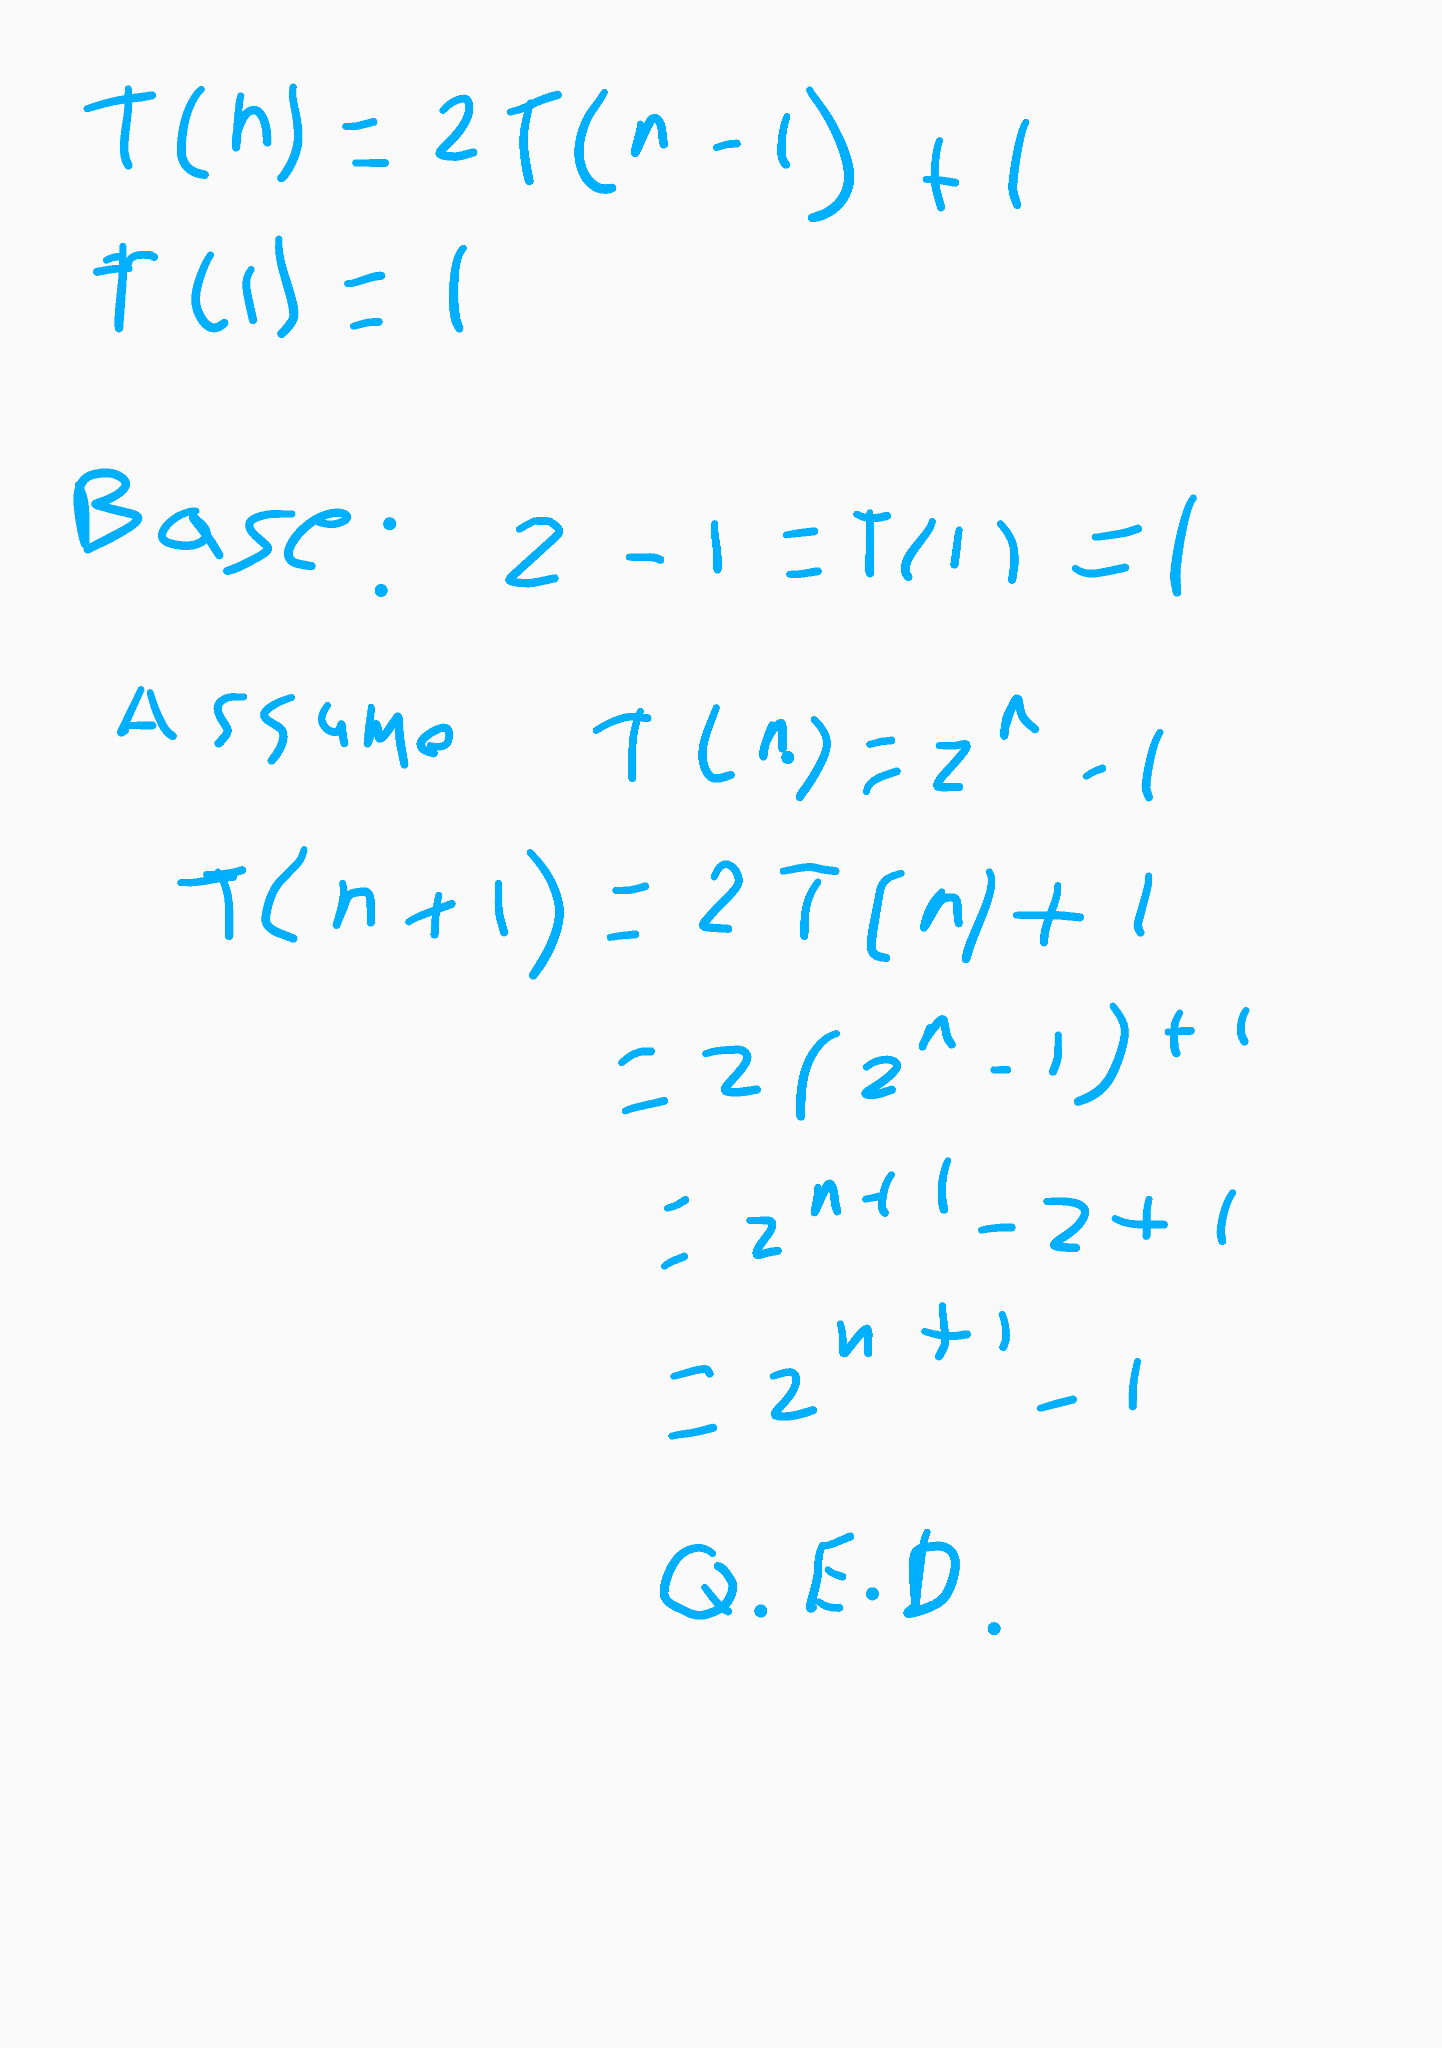 T(n) = 2T(n - 1) + 1
T(1) = 1
Base: 2 - 1 = T(1) = 1
Assume T(n) = 2^n - 1
T(n+1) = 2T(n) + 1
= 2(2^n - 1) + 1
= 2^{n+1} - 2 + 1
= 2^{n+1} - 1
Q.E.D.